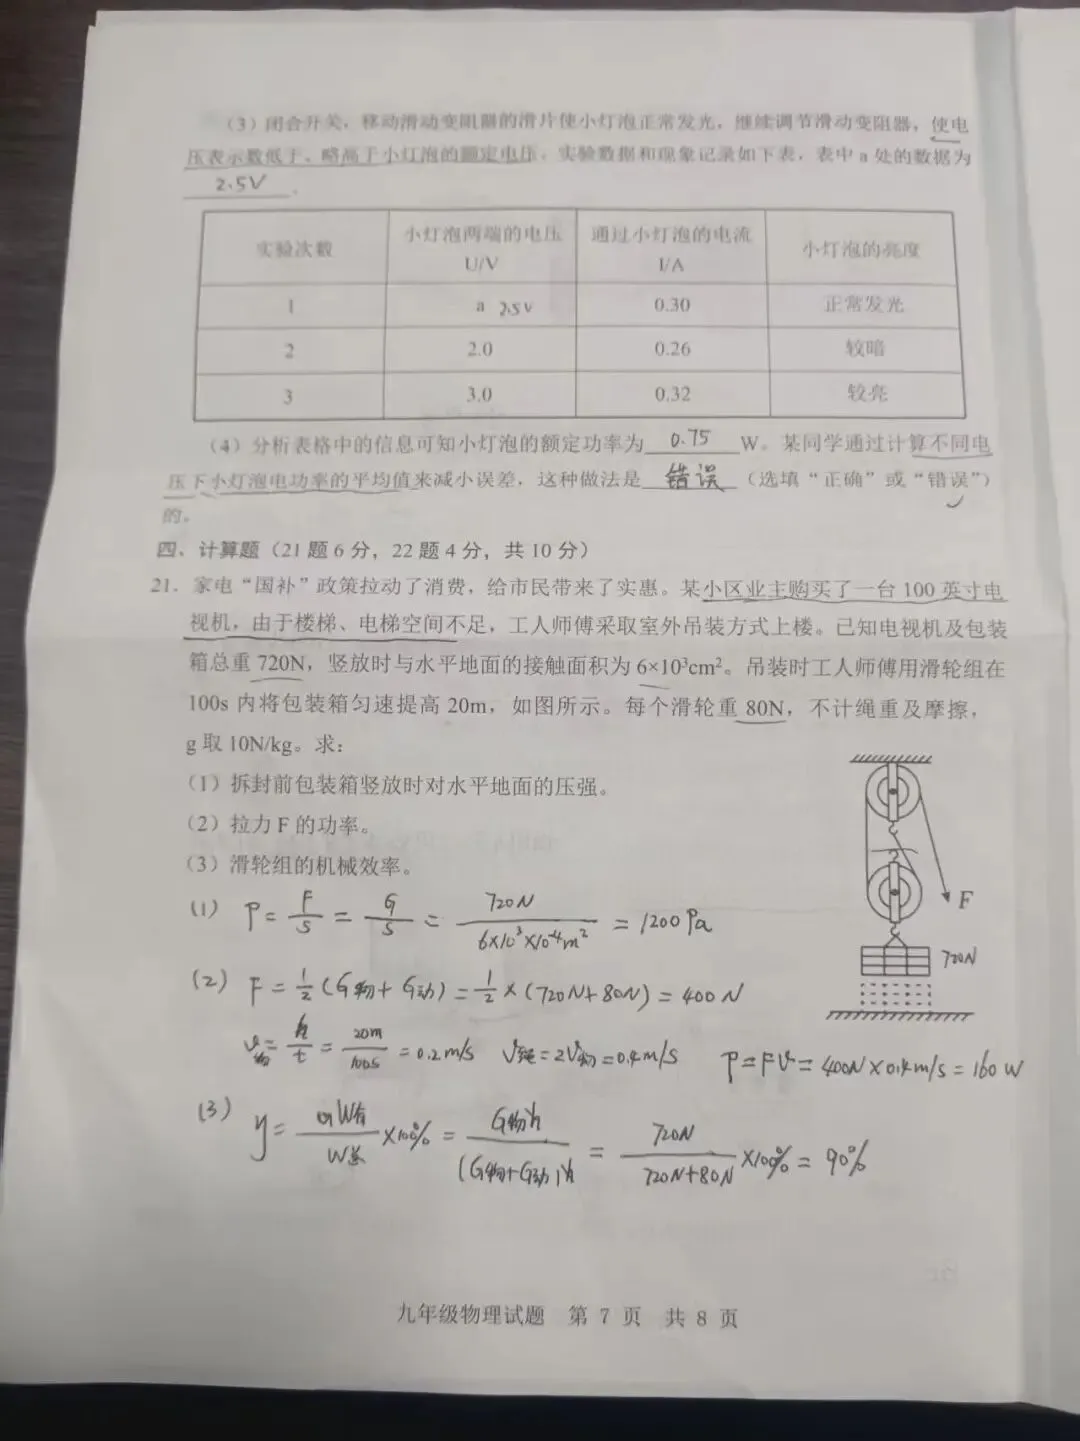 （3）闭合开关，移动滑动变阻器的滑片使小灯泡正常发光，继续调节滑动变阻器，使电
压表示数低于、略高于小灯泡的额定电压，实验数据和现象记录如下表，表中 a 处的数据为
2.5V 。
实验次数 小灯泡两端的电压 U/V 通过小灯泡的电流 I/A 小灯泡的亮度
1 a 2.5V 0.30 正常发光
2 2.0 0.26 较暗
3 3.0 0.32 较亮
（4）分析表格中的信息可知小灯泡的额定功率为 0.75 W。某同学通过计算不同电
压下小灯泡电功率的平均值来减小误差，这种做法是 错误 （选填“正确”或“错误”）
的。
四、计算题（21 题 6 分，22 题 4 分，共 10 分）
21．家电“国补”政策拉动了消费，给市民带来了实惠。某小区业主购买了一台 100 英寸电
视机，由于楼梯、电梯空间不足，工人师傅采取室外吊装方式上楼。已知电视机及包装
箱总重 720N，竖放时与水平地面的接触面积为 6×10³cm²。吊装时工人师傅用滑轮组在
100s 内将包装箱匀速提高 20m，如图所示。每个滑轮重 80N，不计绳重及摩擦，
g 取 10N/kg。求：
（1）拆封前包装箱竖放时对水平地面的压强。
（2）拉力 F 的功率。
（3）滑轮组的机械效率。
F
720N
(1) P = F/S = G/S = 720N/(6×10³×10⁻⁴m²) = 1200Pa
(2) F = 1/2 (G物+G动) = 1/2 × (720N+80N) = 400N
v物 = h/t = 20m/100s = 0.2m/s v绳 = 2v物 = 0.4m/s P = Fv = 400N×0.4m/s = 160W
(3) η = W有/W总 ×100% = G物h/(G物+G动)h = 720N/(720N+80N) ×100% = 90%
九年级物理试题 第 7 页 共 8 页